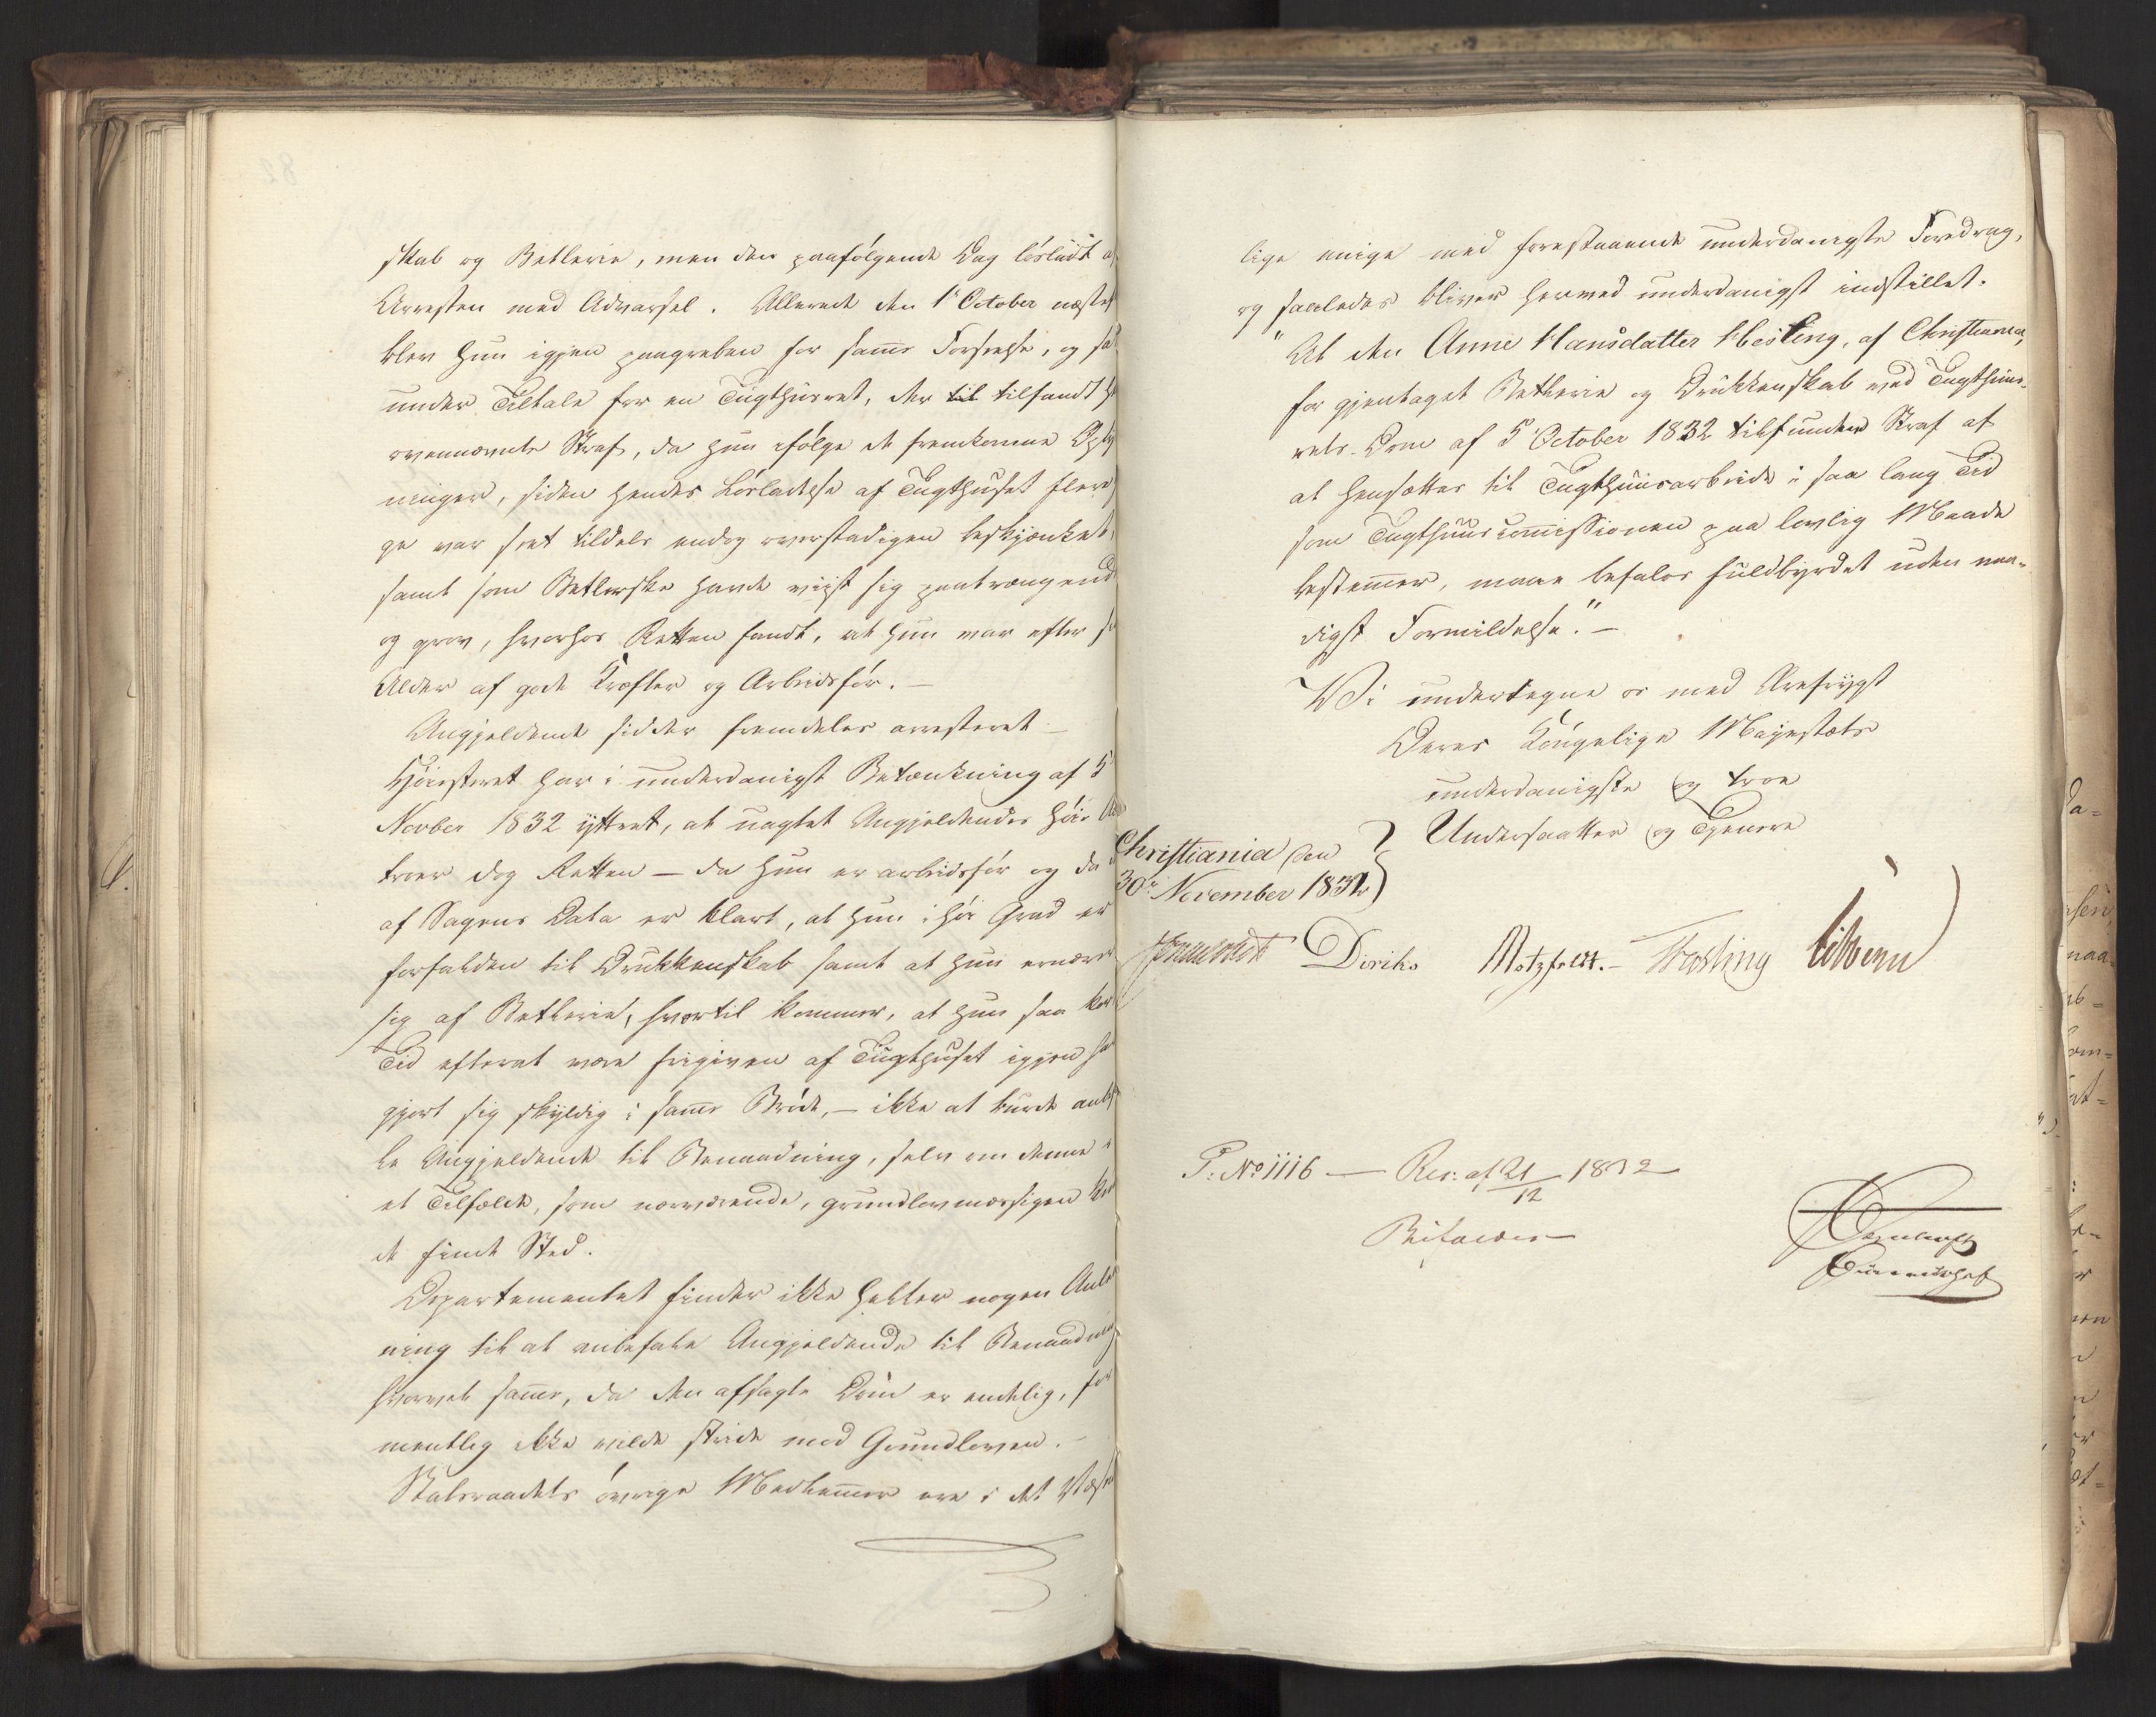 skab og Betlerie, men den paafølgende Dag løsladt a
Arresten med Advarsel. Allerede den 1 October næstef
blev hun igjen paagreben for samme Forseelse, og sa
under Tiltale for en Tugthuusret, der til tilfandt he
ovennævnte Straf, da hun ifølge de fremkomne Oply
ninger, siden hendes Løsladelse af Tugthuset flere
ge var seet tildels endog overstadigen beskjænket,
samt som Betlerske havde viist sig paatrængend
og grov, hvorhos Retten fandt, at hun var efter si
Alder af gode Kræfter og Arbeidsfør. —
Angjeldende sidder fremdeles arresteret —
Høiesteret har i underdanigst Betænkning af 5
Novber 1832 yttret, at uagtet Angjeldendes høie Al
troer dog Retten — da hun er arbeidsfør og da d
af Sagens Data er klart, at hun i høi Grad er
forfalden til Drukkenskab samt at hun ernærer
sig af Betlerie, hvortil kommer, at hun saa kor
Tid efterat være frigiven af Tugthuset igjen ha
gjort sig skyldig i samme Brøde, — ikke at burde anbef
le Angjeldende til Benaadning, selv om denne i
et Tilfælde, som nærværende, grundlovmæssigen kun
de finde Sted.
Departementet finder ikke heller nogen Anled
ning til at anbefale Angjeldende til Benaadning
hvorvel samme, da den afsagte Dom er endelig, for
mentlig ikke vilde stride mod Grundloven. —
Statsraadets øvrige Medlemmer ere i det Væsent
lige enige med forestaaende underdanigste Foredrag,
og saaledes bliver herved underdanigst indstillet.
"At den Anne Hansdatter Hesteng, af Christiania,
for gjentaget Betlerie og Drukkenskab ved Tugthuus-
rets-Dom af 5 October 1832 tilfundne Straf af
at hensættes til Tugthuusarbeide i saa lang Tid
som Tugthuuscommissionen paa lovlig Maade
bestemmer, maae befales fuldbyrdet uden naa-
digst Formildelse." —
Vi undertegne os med Ærefrygt
Deres Kongelige Majestæts
underdanigste og troe
Undersaatter og Tjenere
Christiania den
30te November 1832
Diriks Motzfeldt. — Fasting
P: No 1116 — Res: af 21/12 1832